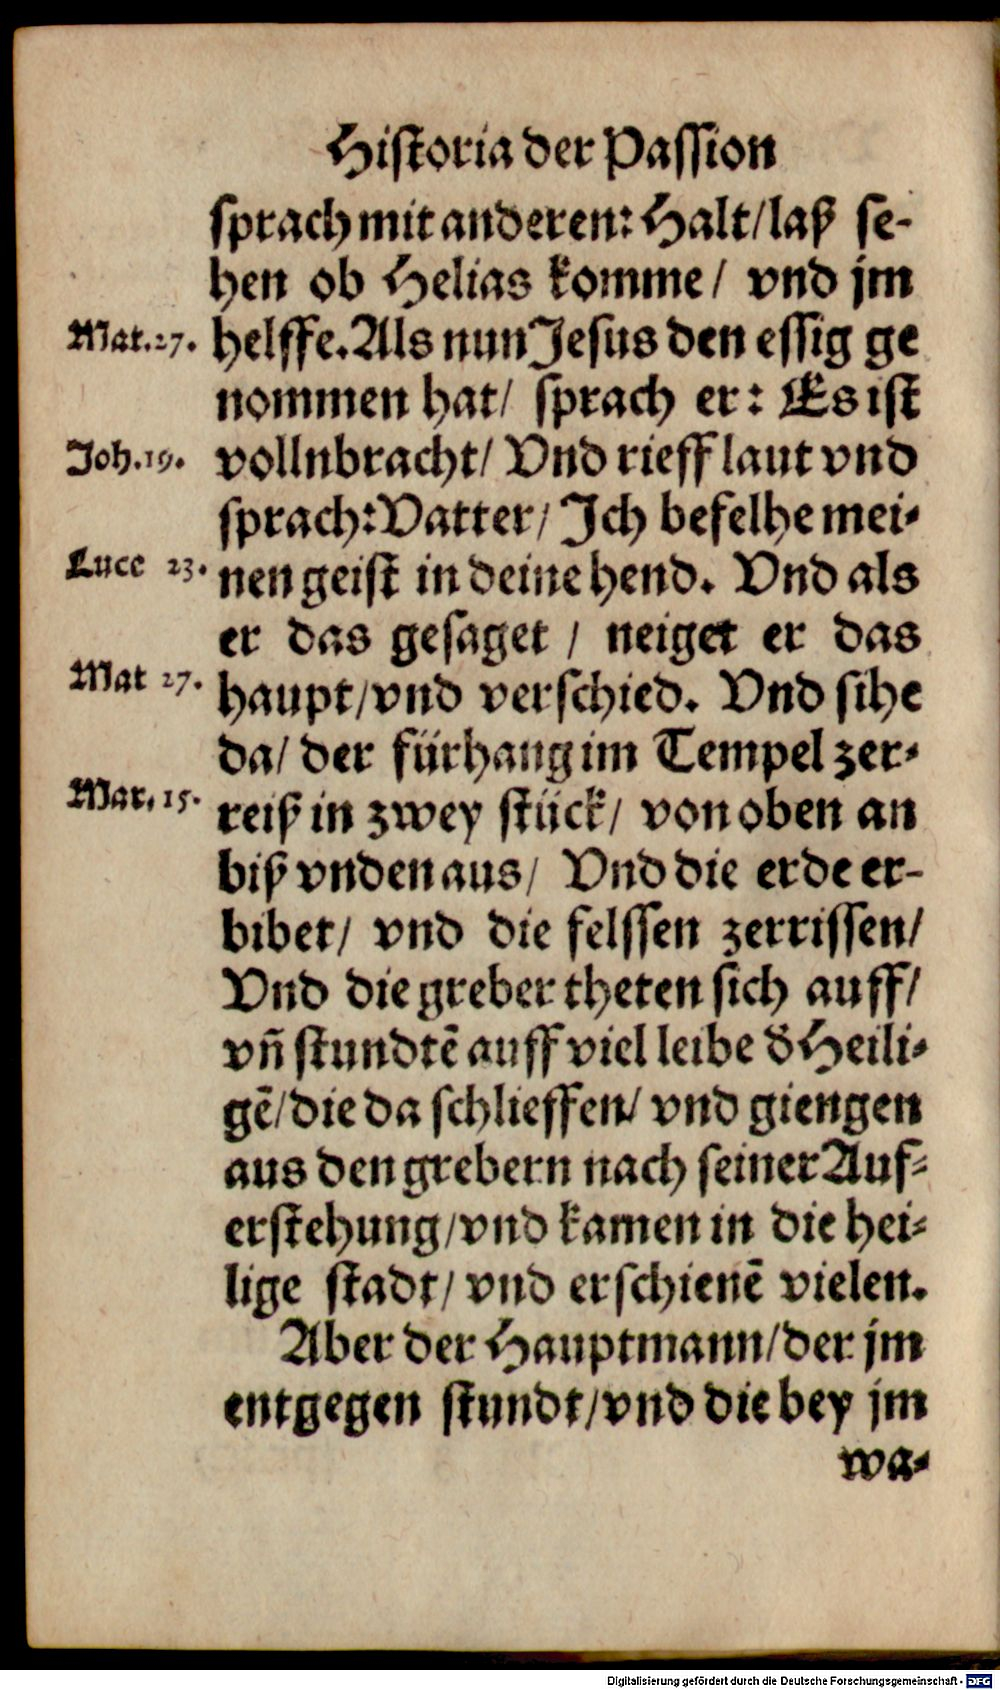 Historia der Passion
sprach mit anderen: Halt/ laß se-
hen ob Helias komme/ vnd jm
Mat. 27.
helffe. Als nun Jesus den essig ge
nommen hat/ sprach er: Es ist
Joh. 19.
vollnbracht/ Vnd rieff laut vnd
sprach: Vatter/ Ich befelhe mei-
Luce 23.
nen geist in deine hend. Vnd als
er das gesaget / neiget er das
Mat 27.
haupt/ vnd verschied. Vnd sihe
da/ der fürhang im Tempel zer-
Mar. 15.
reiß in zwey stück/ von oben an
biß vnden aus/ Vnd die erde er-
bibet/ vnd die felssen zerrissen/
Vnd die greber theten sich auff/
vñ stundtē auff viel leibe d̄ Heili-
gē/ die da schlieffen/ vnd giengen
aus den grebern nach seiner Auf-
erstehung/ vnd kamen in die hei-
lige stadt/ vnd erschienē vielen.
Aber der Hauptmann/ der jm
entgegen stundt/ vnd die bey jm
wa-
Digitalisierung gefördert durch die Deutsche Forschungsgemeinschaft - DFG